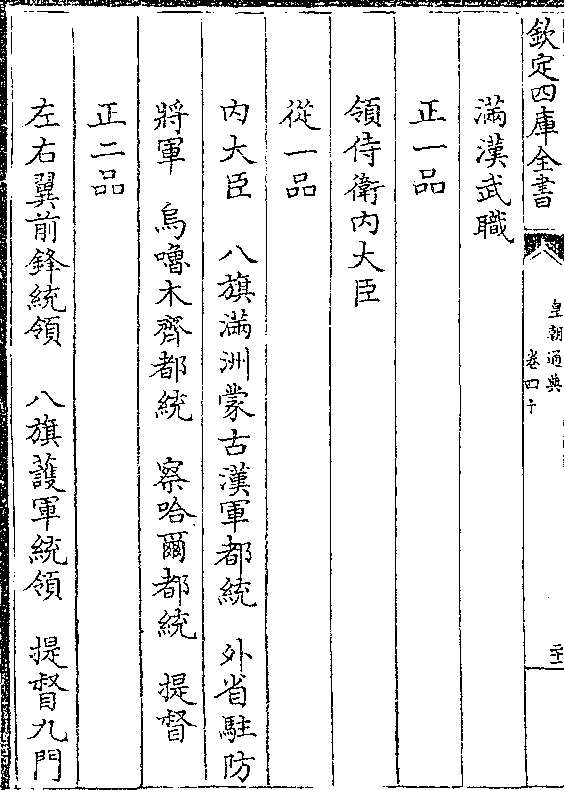 欽定四庫全書
皇朝通典
卷四十
滿漢武職
正一品
領侍衛内大臣
從一品
内大臣　八旗滿洲蒙古漢軍都統　外省駐防
將軍　烏嚕木齊都統　察哈爾都統　提督
正二品
左右翼前鋒統領　八旗護軍統領　提督九門